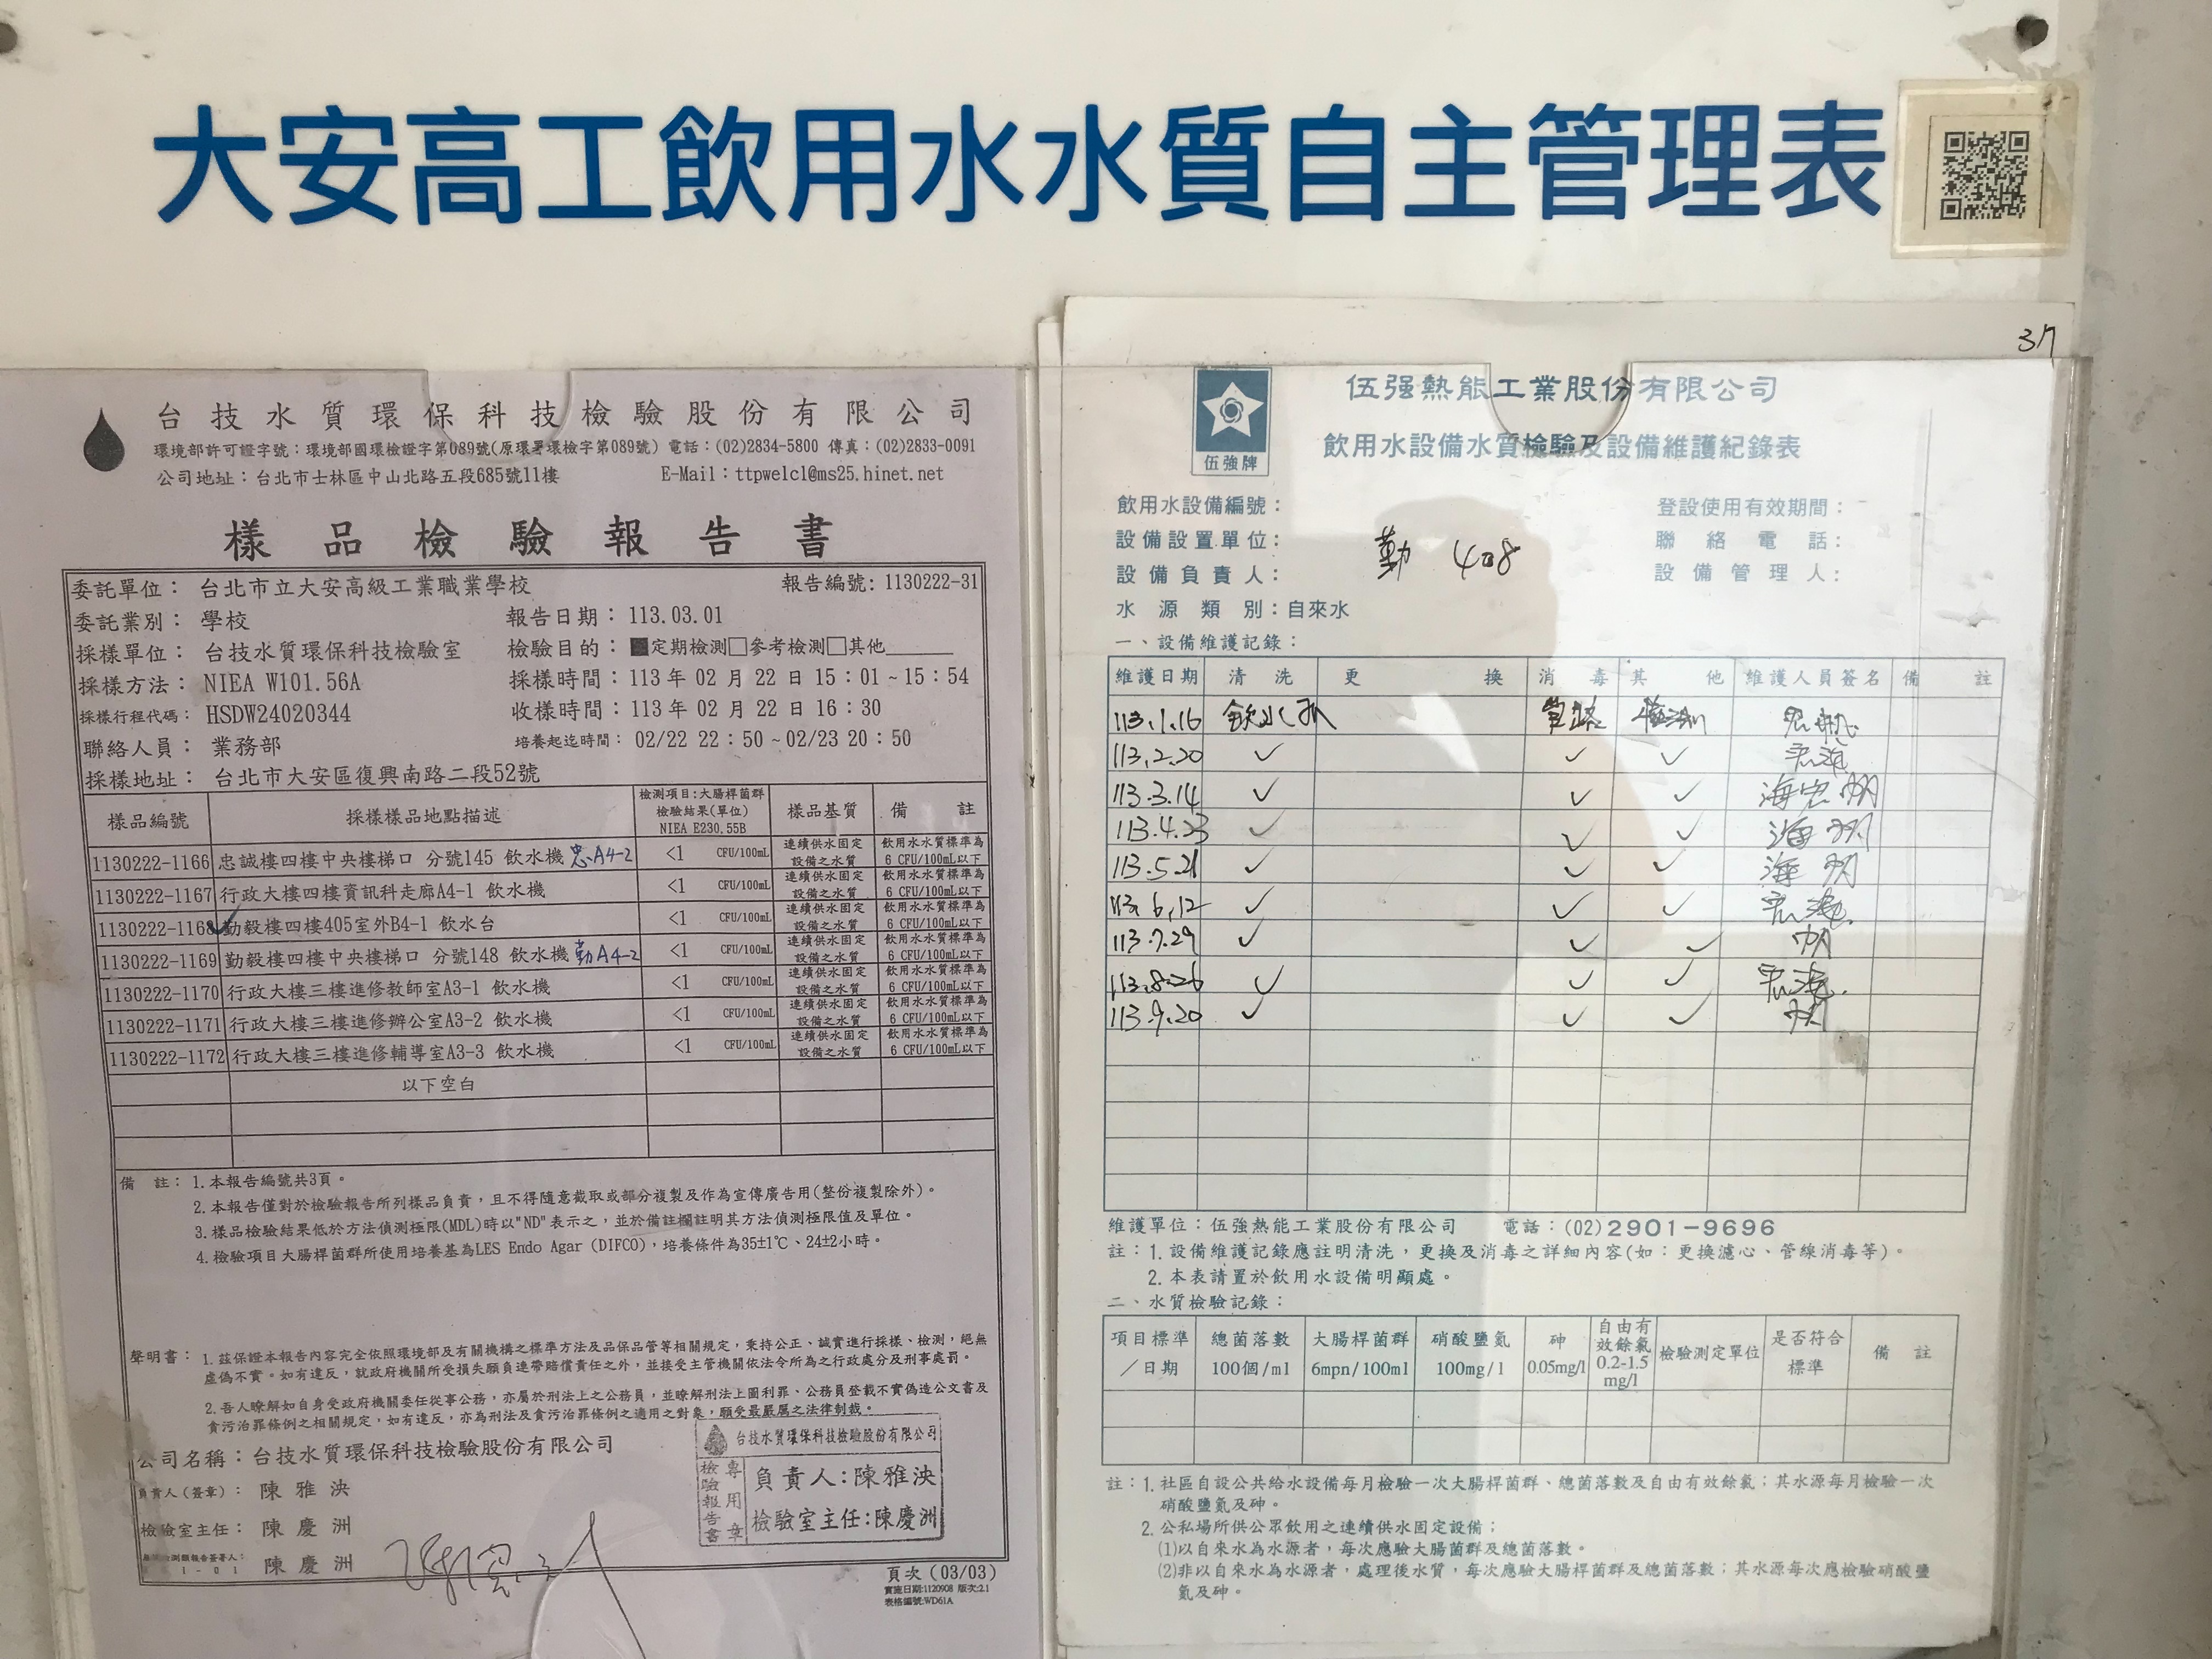 大安高工飲用水水質自主管理表
台技水質環保科技檢驗股份有限公司
環境部許可證字號：環境部國環檢證字第089號(原環署環檢字第089號) 電話：(02)2834-5800 傳真：(02)2833-0091
公司地址：台北市士林區中山北路五段685號11樓 E-Mail：ttpwelcl@ms25.hinet.net
樣品檢驗報告書
委託單位： 台北市立大安高級工業職業學校 報告編號: 1130222-31
委託業別： 學校 報告日期：113.03.01
採樣單位： 台技水質環保科技檢驗室 檢驗目的：■定期檢測□參考檢測□其他
採樣方法： NIEA W101.56A 採樣時間：113 年 02 月 22 日 15：01 ~ 15：54
採樣行程代碼： HSDW24020344 收樣時間：113 年 02 月 22 日 16：30
聯絡人員： 業務部 培養起迄時間： 02/22 22：50 ~ 02/23 20：50
採樣地址： 台北市大安區復興南路二段52號
樣品編號 採樣樣品地點描述 檢測項目:大腸桿菌群 檢驗結果(單位) NIEA E230.55B 樣品基質 備註
1130222-1166 忠誠樓四樓中央樓梯口 分號145 飲水機 忠A4-2 <1 CFU/100mL 連續供水固定設備之水質 飲用水水質標準為6 CFU/100mL以下
1130222-1167 行政大樓四樓資訊科走廊A4-1 飲水機 <1 CFU/100mL 連續供水固定設備之水質 飲用水水質標準為6 CFU/100mL以下
1130222-1168 勤毅樓四樓405室外B4-1 飲水台 <1 CFU/100mL 連續供水固定設備之水質 飲用水水質標準為6 CFU/100mL以下
1130222-1169 勤毅樓四樓中央樓梯口 分號148 飲水機 勤A4-2 <1 CFU/100mL 連續供水固定設備之水質 飲用水水質標準為6 CFU/100mL以下
1130222-1170 行政大樓三樓進修教師室A3-1 飲水機 <1 CFU/100mL 連續供水固定設備之水質 飲用水水質標準為6 CFU/100mL以下
1130222-1171 行政大樓三樓進修辦公室A3-2 飲水機 <1 CFU/100mL 連續供水固定設備之水質 飲用水水質標準為6 CFU/100mL以下
1130222-1172 行政大樓三樓進修輔導室A3-3 飲水機 <1 CFU/100mL 連續供水固定設備之水質 飲用水水質標準為6 CFU/100mL以下
以下空白
備 註： 1.本報告編號共3頁。
2.本報告僅對於檢驗報告所列樣品負責，且不得隨意截取或部分複製及作為宣傳廣告用(整份複製除外)。
3.樣品檢驗結果低於方法偵測極限(MDL)時以"ND"表示之，並於備註欄註明其方法偵測極限值及單位。
4.檢驗項目大腸桿菌群所使用培養基為LES Endo Agar (DIFCO)，培養條件為35±1℃、24±2小時。
聲明書： 1.茲保證本報告內容完全依照環境部及有關機構之標準方法及品保品管等相關規定，秉持公正、誠實進行採樣、檢測，絕無
虛偽不實。如有違反，就政府機關所受損失願負連帶賠償責任之外，並接受主管機關依法令所為之行政處分及刑事處罰。
2.吾人瞭解如自身受政府機關委任從事公務，亦屬於刑法上之公務員，並瞭解刑法上圖利罪、公務員登載不實偽造公文書及
貪污治罪條例之相關規定，如有違反，亦為刑法及貪污治罪條例之適用之對象，願受最嚴厲之法律制裁。
公司名稱：台技水質環保科技檢驗股份有限公司
負責人(簽章)： 陳雅泱
檢驗室主任： 陳慶洲
陳慶洲
台技水質環保科技檢驗股份有限公司
檢驗報告書專用章
負責人:陳雅泱
檢驗室主任:陳慶洲
頁次(03/03)
實施日期:1120908 版次:2.1
表格編號:WD61A
伍強牌
伍强熱能工業股份有限公司
飲用水設備水質檢驗及設備維護紀錄表
飲用水設備編號： 登設使用有效期間：
設備設置單位： 勤 408 聯絡電話：
設備負責人： 設備管理人：
水源類別：自來水
一、設備維護記錄：
維護日期 清洗 更換 消毒 其他 維護人員簽名 備註
113.1.16 飲水機 管路 檢測
113.2.20 ✓ ✓ ✓
113.3.14 ✓ ✓ ✓
113.4.23 ✓ ✓ ✓
113.5.21 ✓ ✓ ✓
113.6.12 ✓ ✓ ✓
113.7.29 ✓ ✓ ✓
113.8.26 ✓ ✓ ✓
113.9.20 ✓ ✓ ✓
維護單位：伍強熱能工業股份有限公司 電話：(02)2901-9696
註：1. 設備維護記錄應註明清洗，更換及消毒之詳細內容(如：更換濾心、管線消毒等)。
2. 本表請置於飲用水設備明顯處。
二、水質檢驗記錄：
項目標準／日期 總菌落數 100個/ml 大腸桿菌群 6mpn/100ml 硝酸鹽氮 100mg/l 砷 0.05mg/l 自由有效餘氯 0.2-1.5 mg/l 檢驗測定單位 是否符合標準 備註
註：1. 社區自設公共給水設備每月檢驗一次大腸桿菌群、總菌落數及自由有效餘氯；其水源每月檢驗一次
硝酸鹽氮及砷。
2. 公私場所供公眾飲用之連續供水固定設備；
(1)以自來水為水源者，每次應驗大腸菌群及總菌落數。
(2)非以自來水為水源者，處理後水質，每次應驗大腸桿菌群及總菌落數；其水源每次應檢驗硝酸鹽
氮及砷。